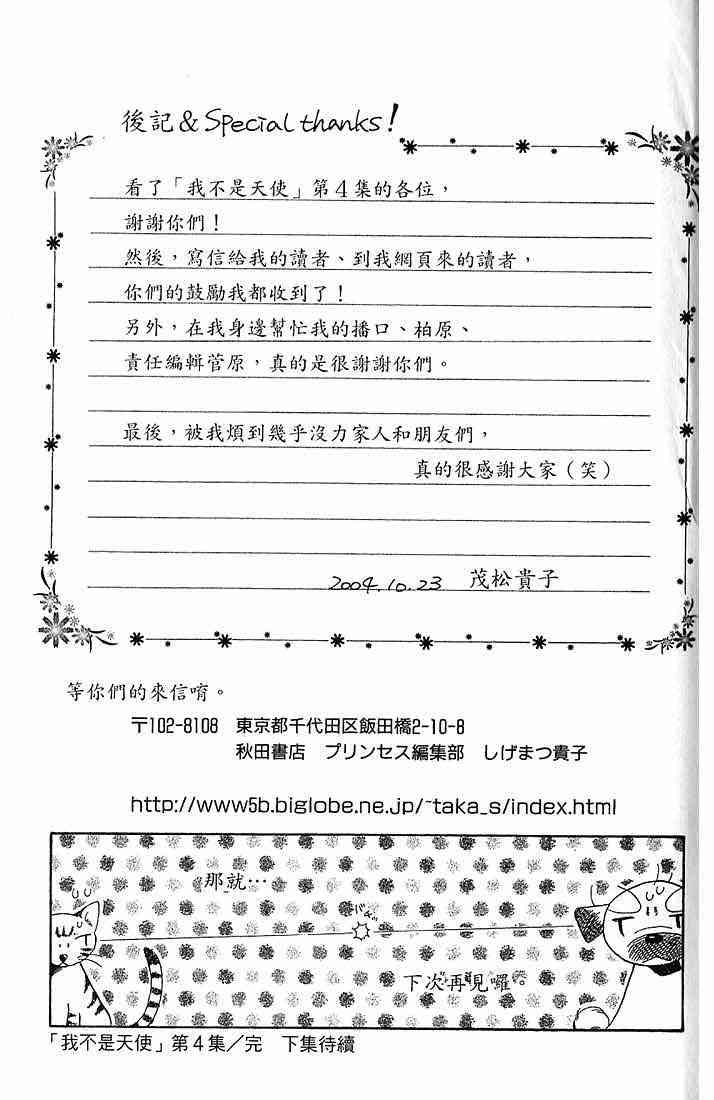 後記&Special thanks!
看了「我不是天使」第4集的各位，
謝謝你們！
然後，寫信給我的讀者、到我網頁來的讀者，
你們的鼓勵我都收到了！
另外，在我身邊幫忙我的播口、柏原、
責任編輯菅原，真的是很謝謝你們。
最後，被我煩到幾乎沒力家人和朋友們，
真的很感謝大家（笑）
2004.10.23 茂松貴子
等你們的來信唷。
〒102-8108 東京都千代田区飯田橋2-10-8
秋田書店 プリンセス編集部 しげまつ貴子
http://www5b.biglobe.ne.jp/~taka_s/index.html
那就…
下次再見囉。
「我不是天使」第4集／完 下集待續